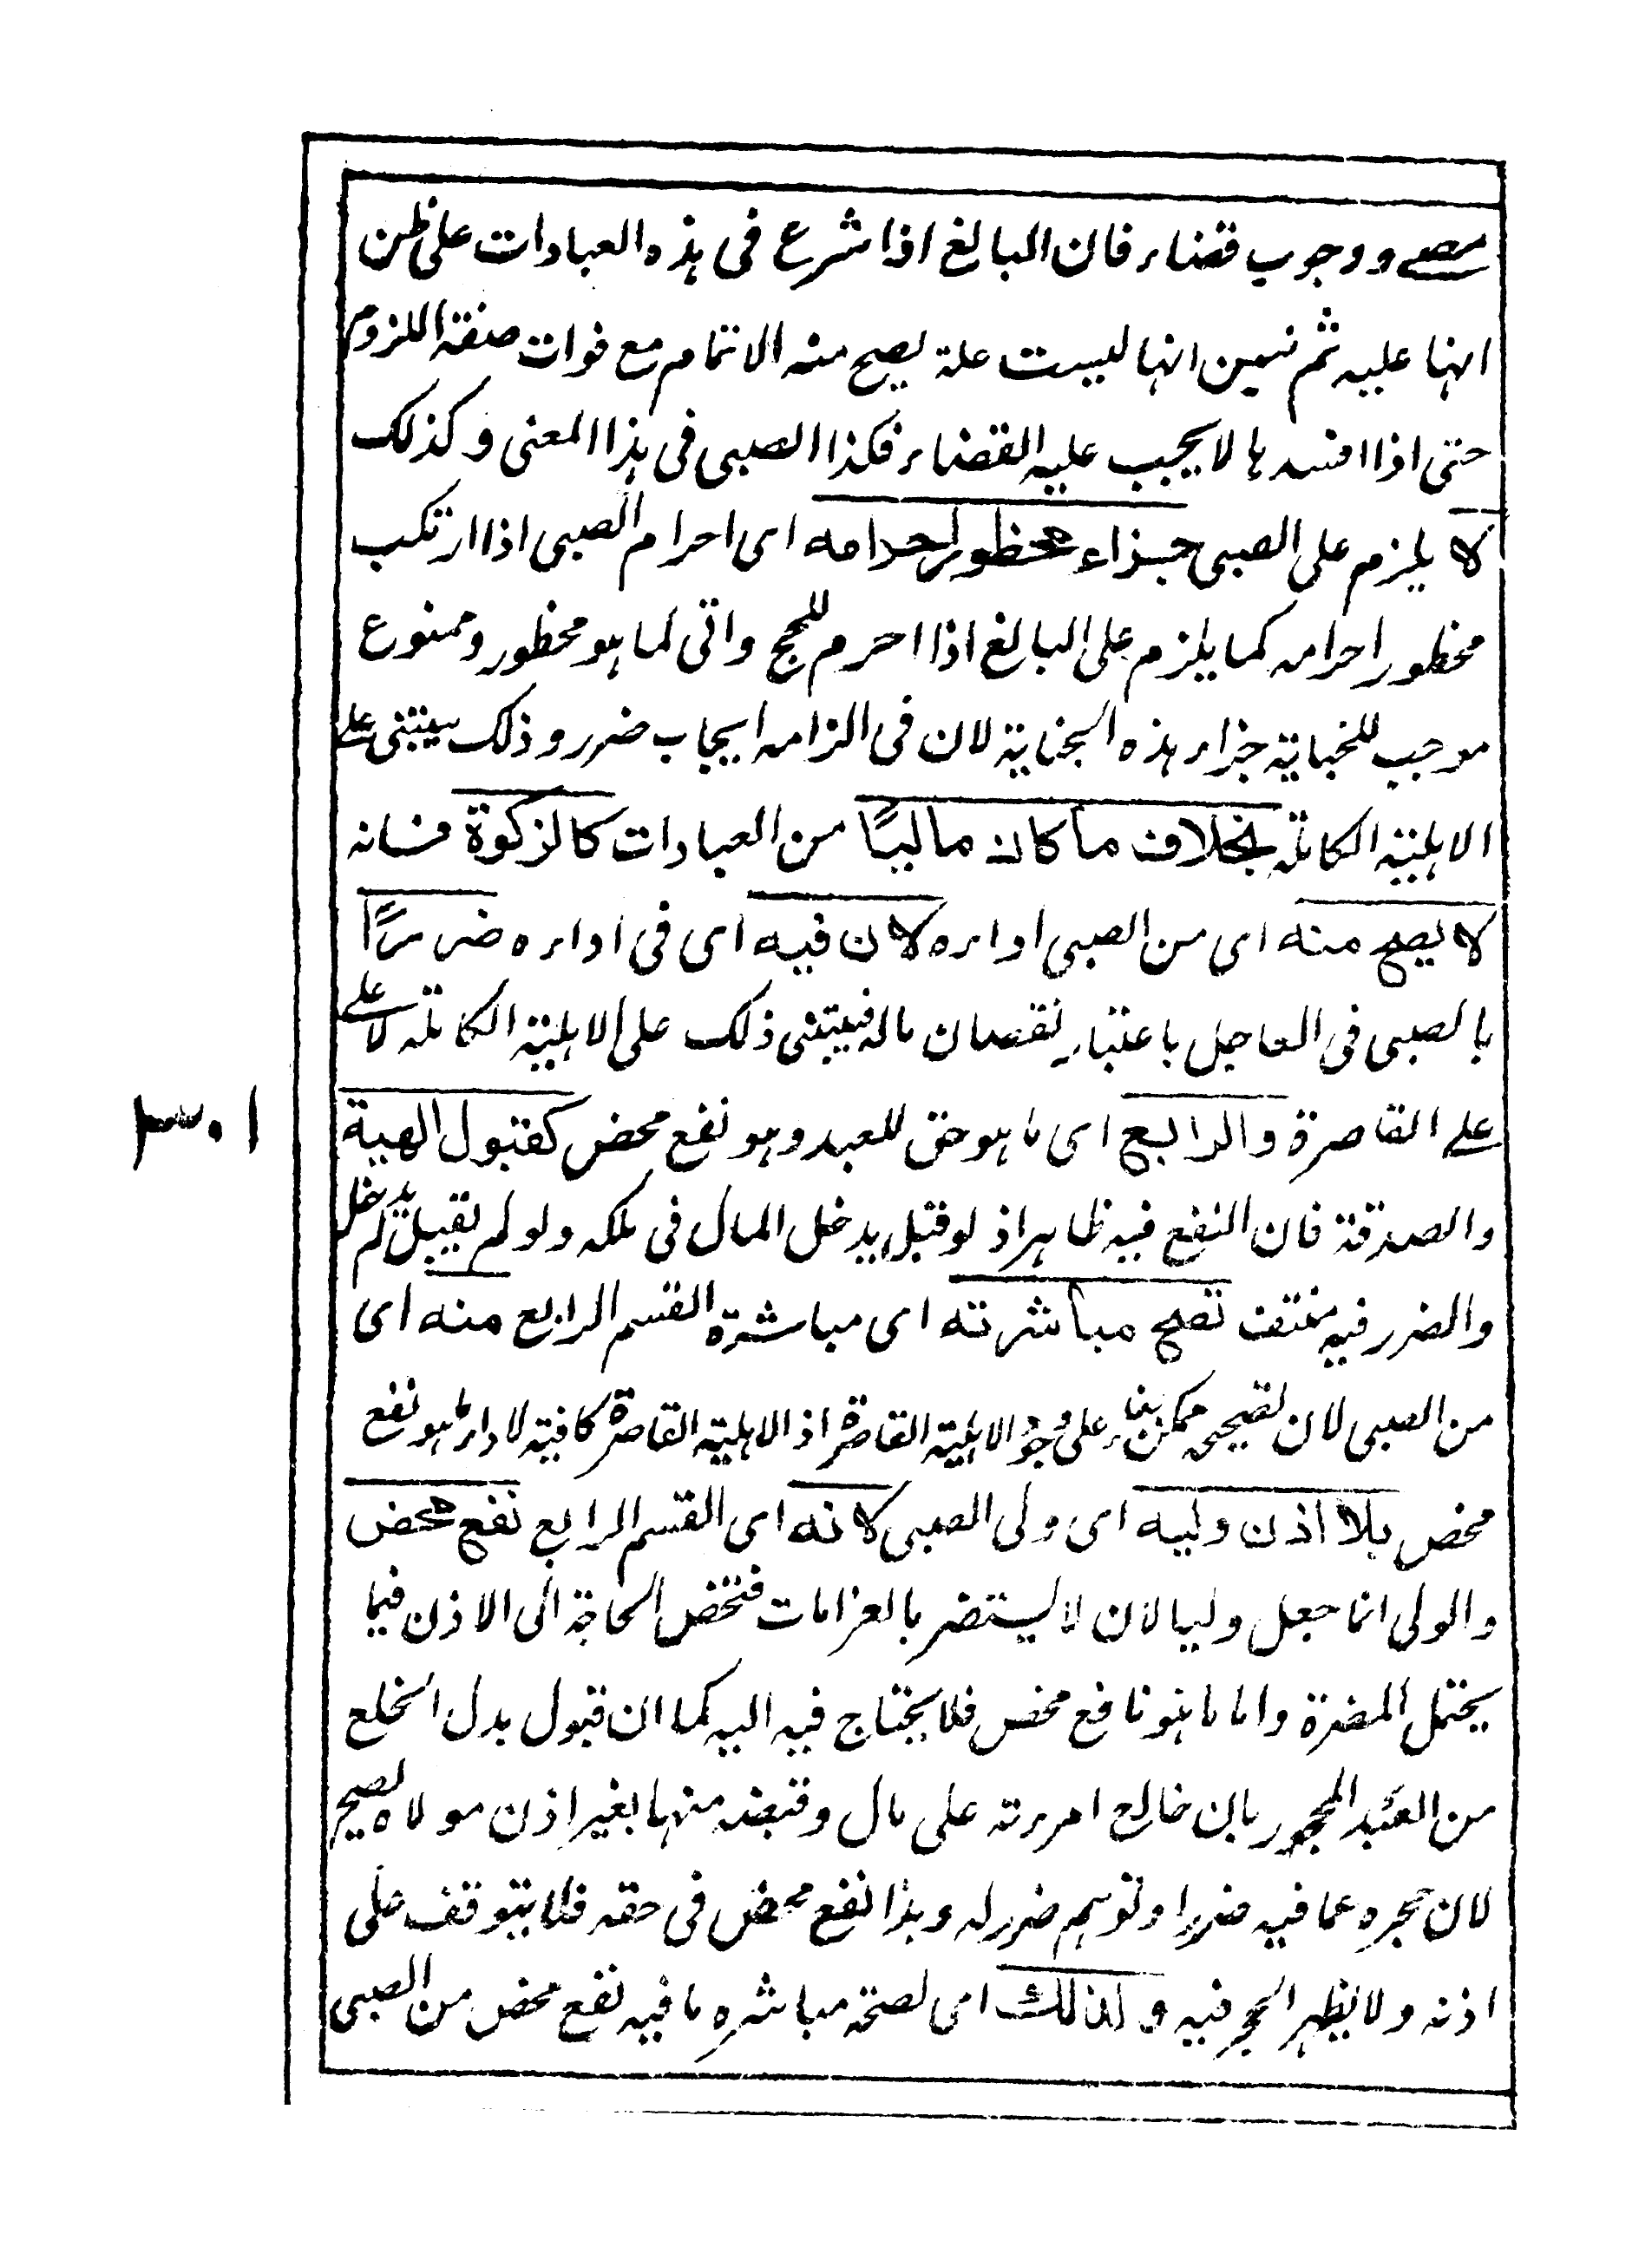 مضے ووجوب قضاء فان البالغ اذا شرع فى هذه العبادات على ظن
انها عليه ثم تبين انها ليست علة يصح منه الاتمام مع فوات صفة اللزوم
حتى اذا افسدها لا يجب عليه القضاء فكذا الصبى فى هذا المعنى وكذلك
لا يلزم على الصبى جزاء محظور احرامه اى احرام الصبى اذا ارتكب
محظور احرامه كما يلزم على البالغ اذا احرم للحج واتى لما هو محظور وممنوع
موجب للجناية جزاء هذه الجناية لان فى الزامه ايجاب ضرر وذلك يبتنى على
الاهلية الكاملة بخلاف ما كان ماليًا من العبادات كالزكوة فانه
لا يصح منه اى من الصبى اداءه لان فيه اى فى اداءه ضررًا
بالصبى فى العاجل باعتبار نقصان ماله فيبتنى ذلك على الاهلية الكاملة لا علے
علے القاصرة والرابع اى ما هو حق للعبد وهو نفع محض كقبول الهبة
والصدقة فان النفع فيه ظاهر اذ لو قبل يدخل المال فى ملكه ولو لم يقبل لم يدخل
والضرر فيه منتف تصح مباشرته اى مباشرة القسم الرابع منه اى
من الصبى لان تصحيحه ممكن بناء على وجود الاهلية القاصرة اذ الاهلية القاصرة كافية لاداء ما هو نفع
محض بلا اذن وليه اى ولى الصبى لانه اى القسم الرابع نفع محض
والولى انما جعل وليا لان لا يستضر بالغرامات فتخص الحاجة الى الاذن فيما
يحتمل المضرة واما ما هو نافع محض فلا يحتاج فيه اليه كما ان قبول بدل الخلع
من العبد المحجور بان خالع امرءته على مال وقبضه منها بغير اذن مولاه يصح
لان حجره عما فيه ضرر او توهم ضرر له وهذا نفع محض فى حقه فلا يتوقف على
اذنه ولا يظهر الحجر فيه ولذلك اى لصحة مباشره ما فيه نفع محض من الصبى
٣٠١